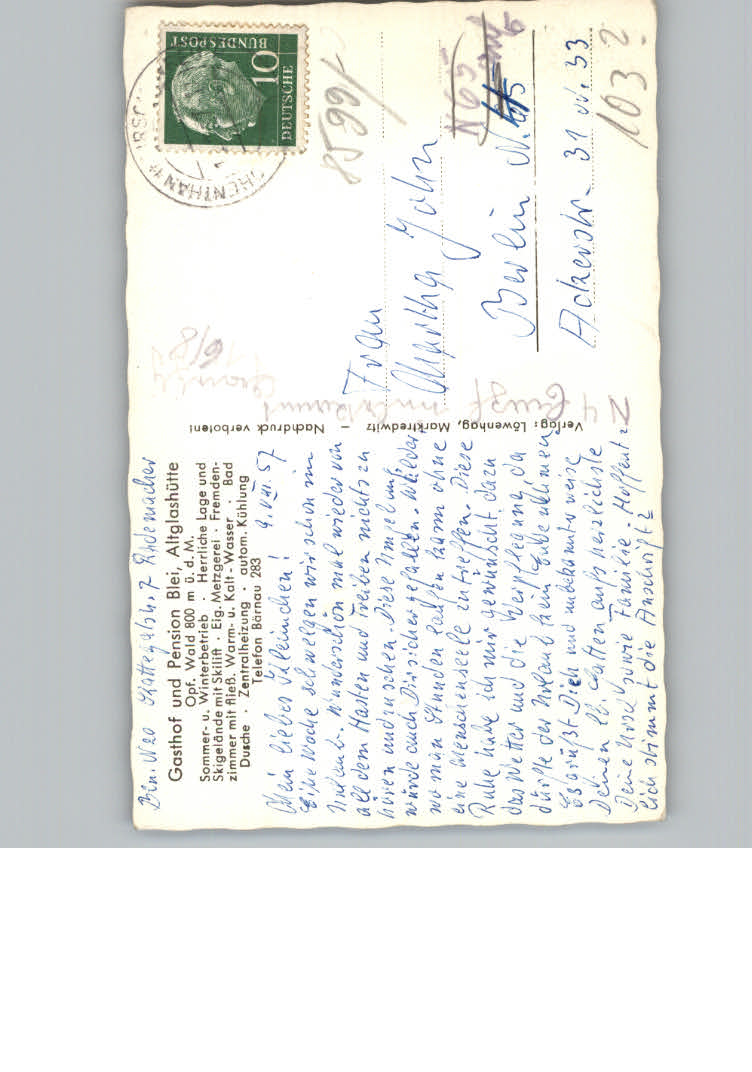 Bln. N20 Stattegatstr. 7 Rademacher
Gasthof und Pension Blei, Altglashütte
Opf. Wald 800 m ü. d. M.
Sommer- u. Winterbetrieb · Herrliche Lage und
Skigelände mit Skilift · Eig. Metzgerei · Fremden-
zimmer mit fließ. Warm- u. Kalt-Wasser · Bad
Dusche · Zentralheizung · autom. Kühlung
Telefon Bärnau 283
9. VIII. 57
Mein liebes Kleinchen!
Eine Woche schwelgen wir schon im
Urlaub. Wunderschön mal wieder von
all dem Hasten und Treiben nichts zu
hören und zu sehen. Diese Umgebung
würde auch Dir sicher gefallen. Wälder
wo man Stunden laufen kann ohne
eine Menschenseele zu treffen. Diese
Ruhe habe ich mir gewünscht. dazu
das Wetter und die Verpflegung, da
dürfte der Urlaub kein Ende nehmen.
Es grüßt Dich und unbekannterweise
Deinen Gatten aufs herzlichste
Deine Ursel sowie Familie. Hoffent-
lich stimmt die Anschrift?
Verlag: Löwenhag, Marktredwitz – Nachdruck verboten!
DEUTSCHE
BUNDESPOST
10
8599/
Frau
Martha John
Berlin N.
Ackerstr. 31
33
N65
103?
N4
16/8